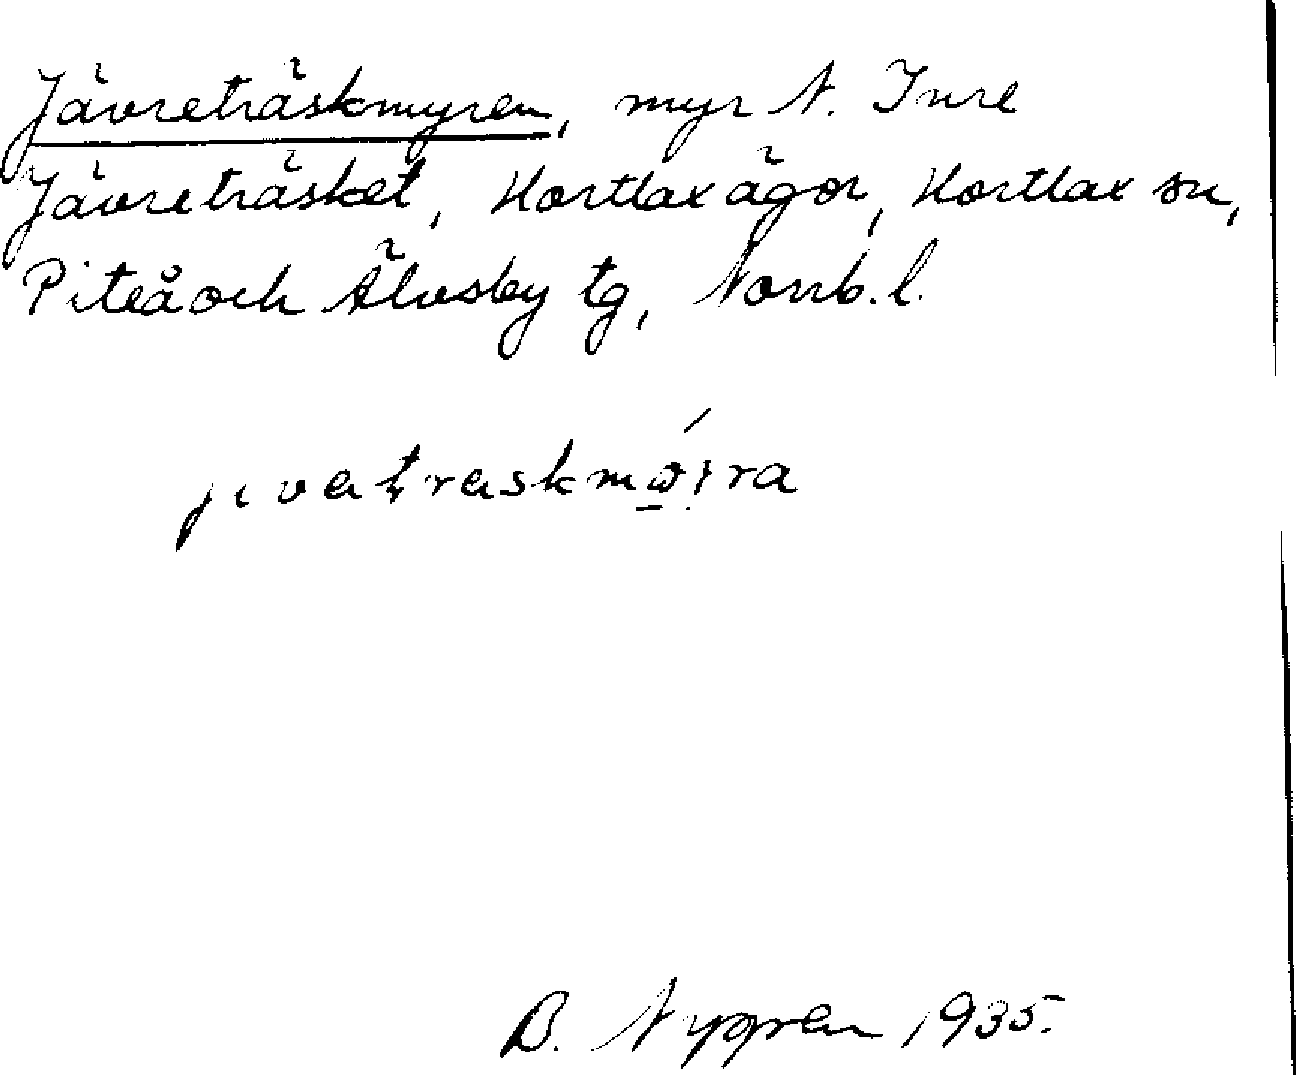 Jävreträskmyren, myr N. Inre
Jävreträsket, Hortlax ägor, Hortlax sn,
Piteå och Älvsby tg, Norrb. l.
B. Nygren 1935.